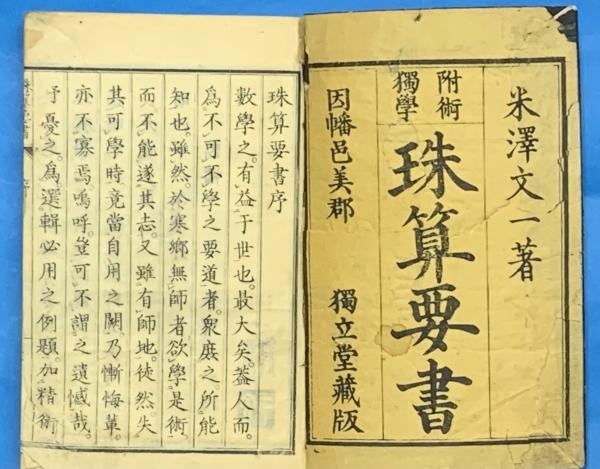 米澤文一著
附術
獨學
珠算要書
因幡邑美郡 獨立堂藏版
珠算要書序
數學之有益于世也。最大矣。蓋人而。
為不可不學之要道者。衆庶之所能
知也。雖然。於寒鄉無師者欲學是術
而不能遂其志。又雖有師地。徒然失
其可學時竟當自用之闕乃慚悔輩。
亦不寡焉。嗚呼。豈可不謂之遺憾哉。
予憂之。爲選輯必用之例題。加精術